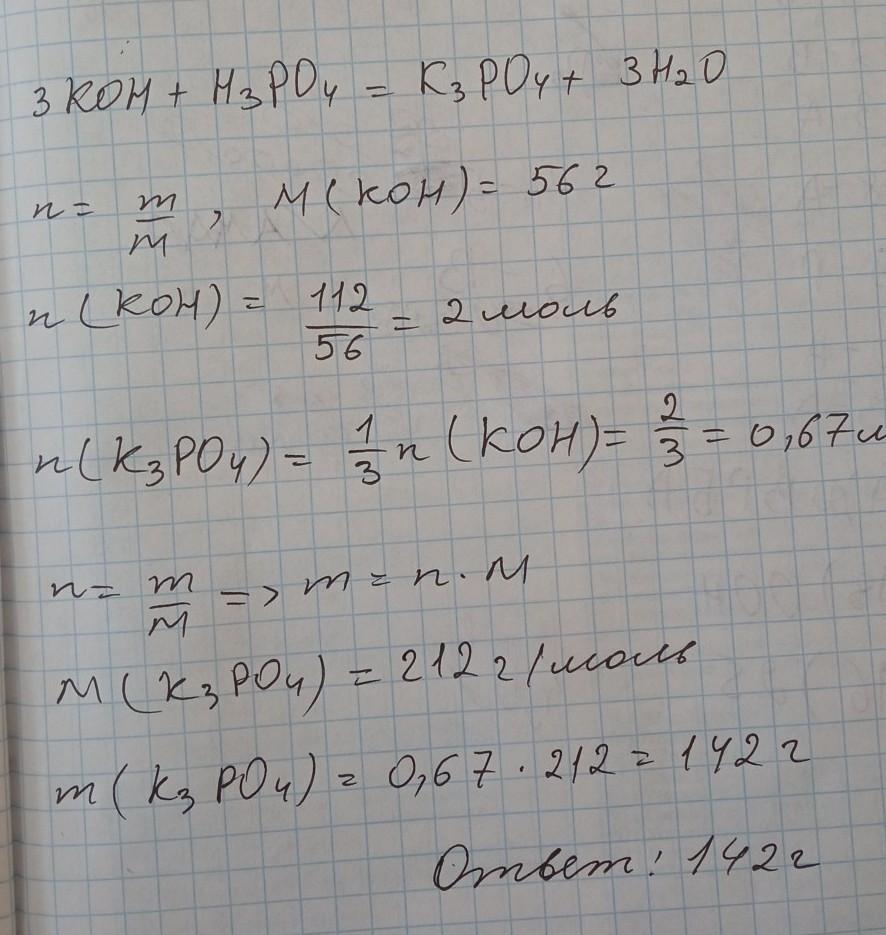 3KOH + H₃PO₄ = K₃PO₄ + 3H₂O
n = m/M, M(KOH) = 56 г
n(KOH) = 112/56 = 2 моль
n(K₃PO₄) = 1/3 n(KOH) = 2/3 = 0,67 м
n = m/M => m = n · M
M(K₃PO₄) = 212 г/моль
m(K₃PO₄) = 0,67 · 212 = 142 г
Ответ: 142 г